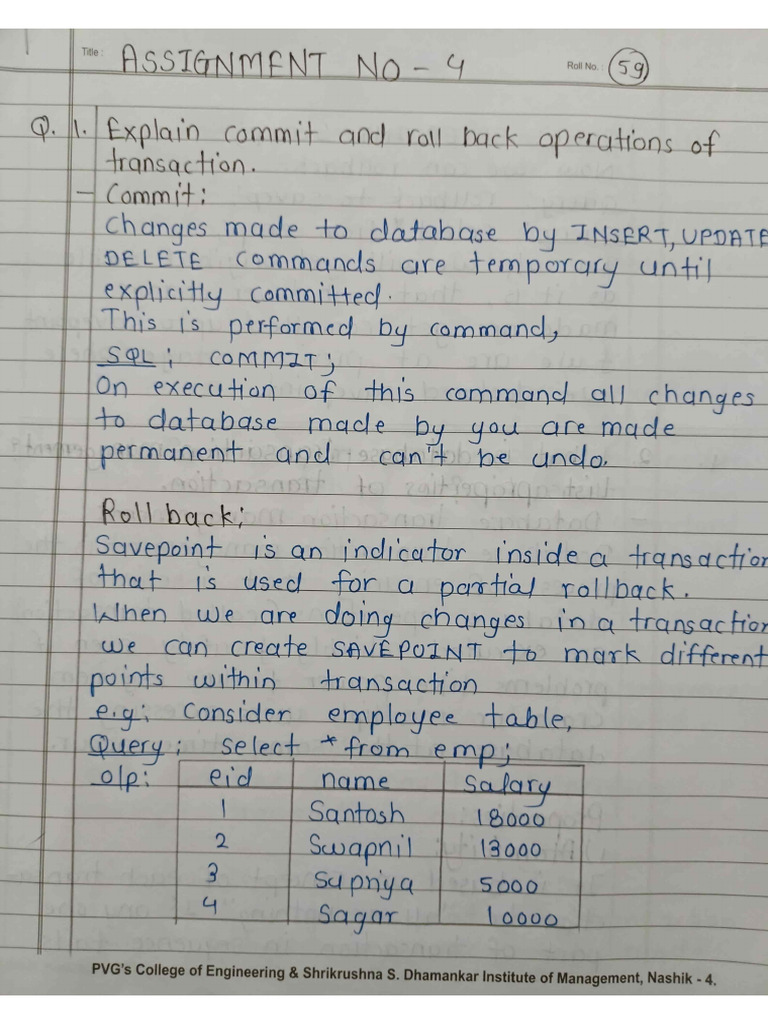 Title : ASSIGNMENT NO - 4 Roll No. : 59
Q. 1. Explain commit and roll back operations of
transaction.
- Commit :
Changes made to database by INSERT, UPDATE
DELETE commands are temporary until
explicitly committed.
This is performed by command,
SQL ; COMMIT ;
On execution of this command all changes
to database made by you are made
permanent and can't be undo.
Roll back ;
Savepoint is an indicator inside a transaction
that is used for a partial rollback.
When we are doing changes in a transaction
we can create SAVEPOINT to mark different
points within transaction
e.g ; Consider employee table,
Query ; select * from emp ;
o/p : eid name Salary
1 Santosh 18000
2 Swapnil 13000
3 Supriya 5000
4 Sagar 10000
PVG's College of Engineering & Shrikrushna S. Dhamankar Institute of Management, Nashik - 4.